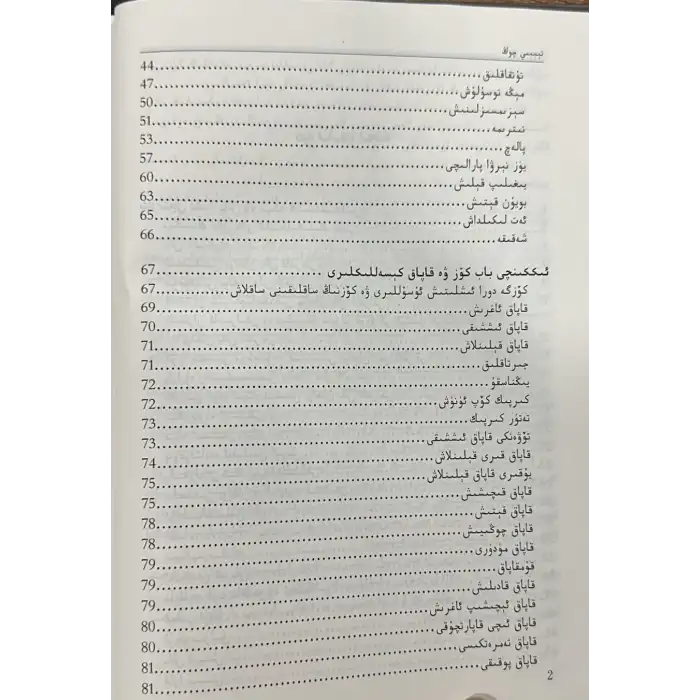 تىبىسى چوڭ
تۇتقاقلىق 44
مېڭە توسۇلۇش 47
سېزىمسىزلىنىش 50
تىترىمە 51
پالەچ 53
يۈز نېرۋا پارالىچى 57
يىغىلىپ قېلىش 60
بويۇن قېتىش 63
ئەت لىكىلداش 65
شەقىقە 66
ئىككىنچى باب كۆز ۋە قاپاق كېسەللىكلىرى 67
كۆزگە دورا ئىشلىتىش ئۇسۇللىرى ۋە كۆزنىڭ ساقلىقىنى ساقلاش 67
قاپاق ئاغرىش 69
قاپاق ئىششىقى 70
قاپاق قېلىنلاش 71
جىرتاقلىق 71
يىڭناسقۇ 72
كىرپىك كۆپ ئۈنۈش 72
تەتۈر كىرپىك 73
تۆۋەنكى قاپاق ئىششىقى 73
قاپاق قىرى قېلىنلاش 74
يۇقىرى قاپاق قېلىنلاش 75
قاپاق قىچىشىش 75
قاپاق قېتىش 78
قاپاق چوڭىيىش 78
قاپاق مۈدۈرى 79
قۇمقاپاق 79
قاپاق قادىلىش 79
قاپاق ئېچىشىپ ئاغرىش 80
قاپاق ئىچى قاپارتچۇقى 80
قاپاق تەمرەتكىسى 81
قاپاق پوقىقى 81
2